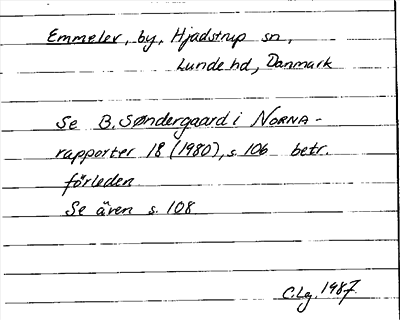 Emmelev, by, Hjadstrup sn,
Lunde hd, Danmark
Se B. Søndergaard i NORNA-
rapporter 18 (1980), s. 106 betr.
förleden
Se även s. 108
C.Lg. 1987.